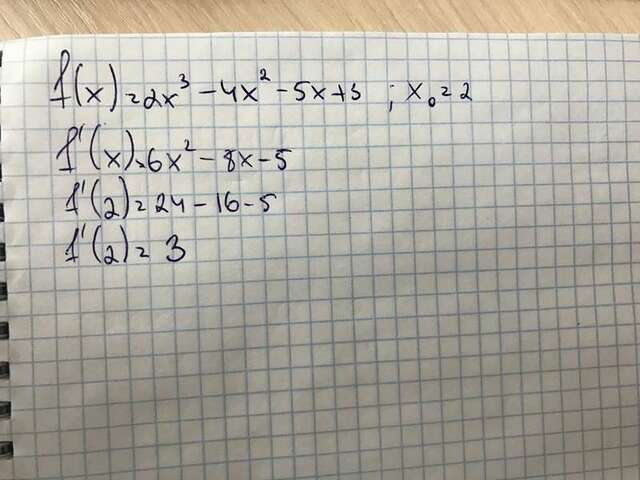 f(x)=2x³-4x²-5x+5 ; x₀=2
f'(x)=6x²-8x-5
f'(2)=24-16-5
f'(2)=3